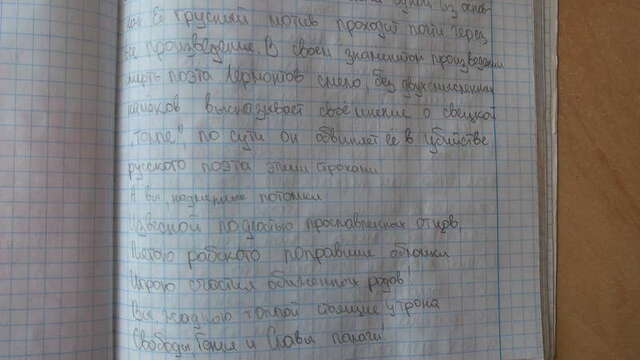 одной из
её грустный мотив проходит почти через
произведение. В своем знаменитом произведении
смерть поэта Лермонтов смело, без двухсмысленных
намеков высказывает своё мнение о свецкой
"толпе", по сути он обвиняет её в убийстве
русского поэта этими строками
А вы, надменные потомки
Известной подлостью прославленных отцов,
Пятою рабскою поправшие обломки
Игрою счастия обиженных родов!
Вы, жадною толпой стоящие у трона
Свободы, Гения и Славы палачи!